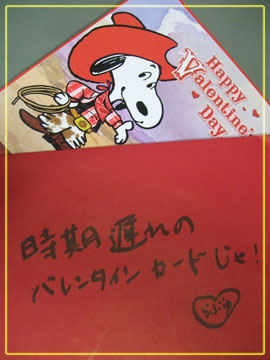 Happy
Valentine's
Day!
時期遅れの
バレンタイン カードじゃ!